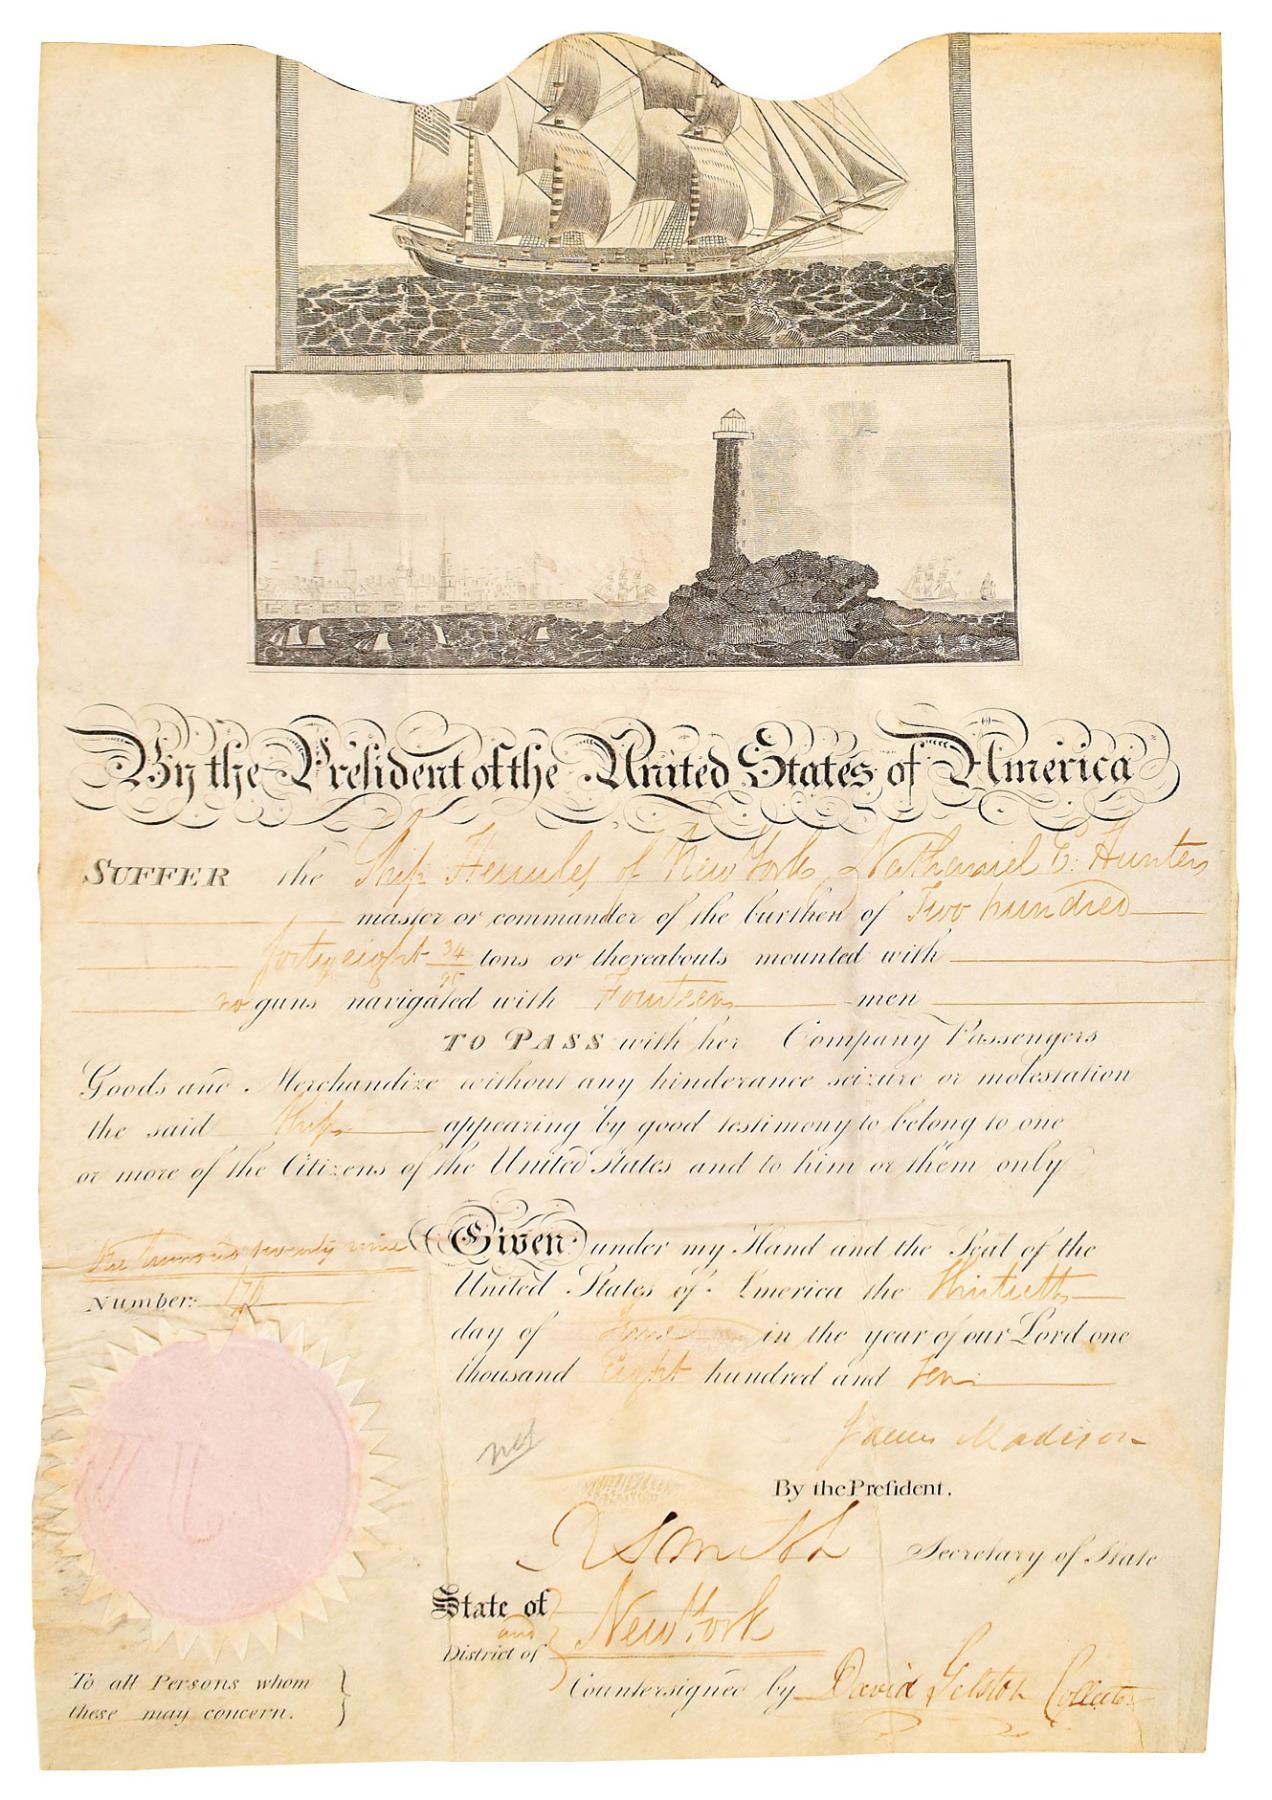 By the President of the United States of America
SUFFER the Ship Hercules of New York, Nathaniel E. Hunter
master or commander of the burthen of Two hundred
forty eight 34/95 tons or thereabouts mounted with
no guns navigated with Fourteen men
TO PASS with her Company Passengers
Goods and Merchandize without any hinderance seizure or molestation
the said Ship appearing by good testimony to belong to one
or more of the Citizens of the United States and to him or them only
Given under my Hand and the Seal of the
United States of America the Thirtieth
day of June in the year of our Lord one
thousand Eight hundred and ten
hundred twenty nine
Number:
James Madison
By the Preſident.
R Smith Secretary of State
State of
and
District of
New York
Countersigned by David Gelston Collector
To all Persons whom
these may concern.